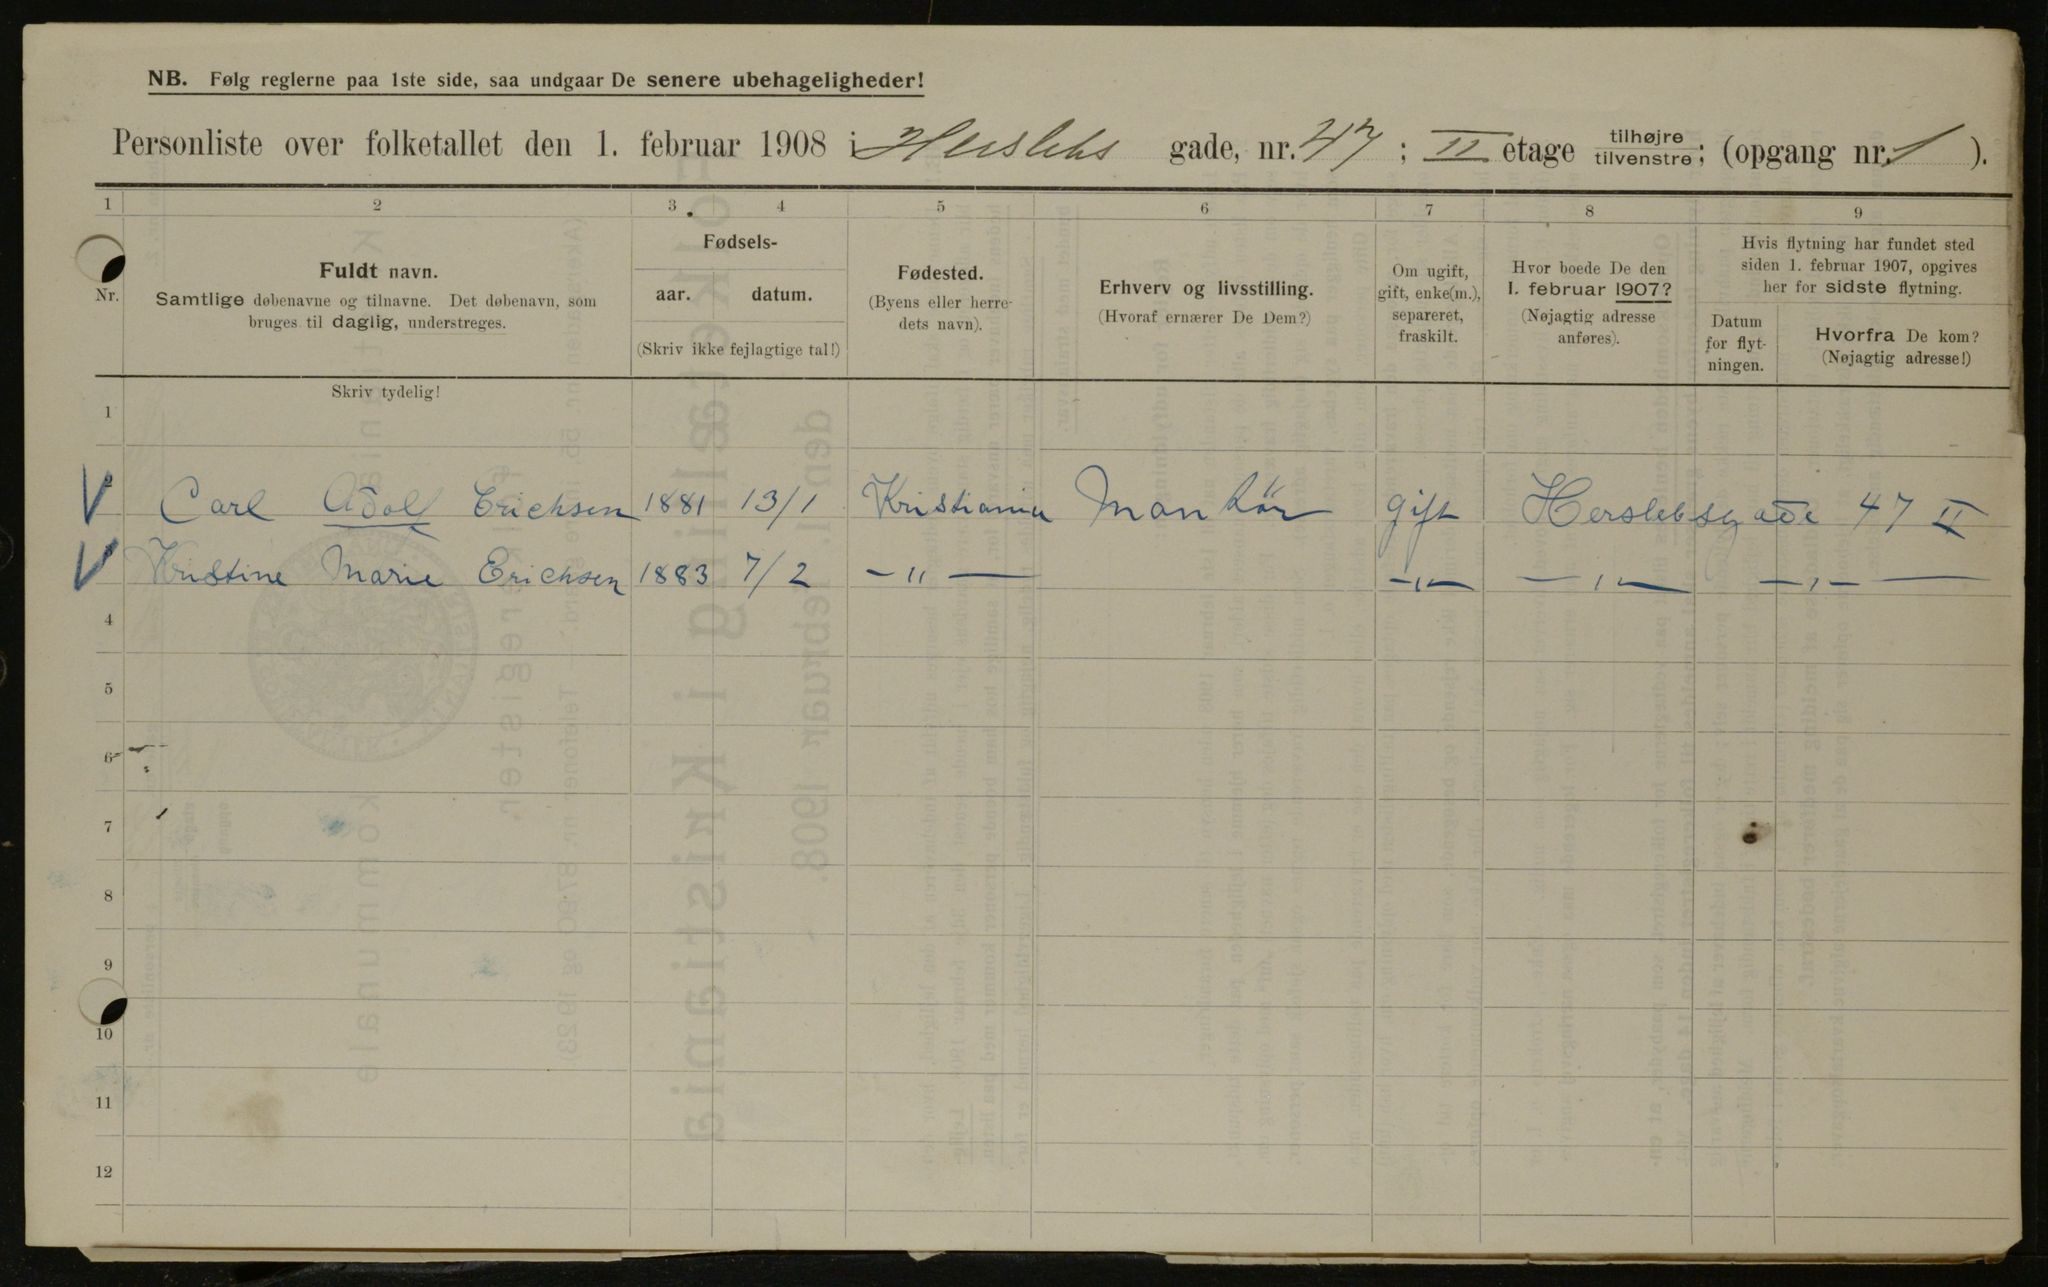 NB. Følg reglerne paa 1ste side, saa undgaar De senere ubehageligheder!
Personliste over folketallet den 1. februar 1908 i Herslebs gade, nr. 47 ; II etage tilhøjre tilvenstre; (opgang nr. 1 ).
1 2 3 4 5 6 7 8 9
Nr.
Fuldt navn.
Samtlige døbenavne og tilnavne. Det døbenavn, som
bruges til daglig, understreges.
Fødsels-
aar. datum.
(Skriv ikke fejlagtige tal!)
Fødested.
(Byens eller herre-
dets navn).
Erhverv og livsstilling.
(Hvoraf ernærer De Dem?)
Om ugift,
gift, enke(m.),
separeret,
fraskilt.
Hvor boede De den
1. februar 1907?
(Nøjagtig adresse
anføres).
Hvis flytning har fundet sted
siden 1. februar 1907, opgives
her for sidste flytning.
Datum
for flyt-
ningen.
Hvorfra De kom?
(Nøjagtig adresse!)
Skriv tydelig!
1
Carl Adolf Erichsen 1881 13/1 Kristiania gift Herslebsgade 47 II
Kristine Marie Erichsen 1883 7/2 —"— —"— —"— —"—
4
5
6
7
8
9
10
11
12